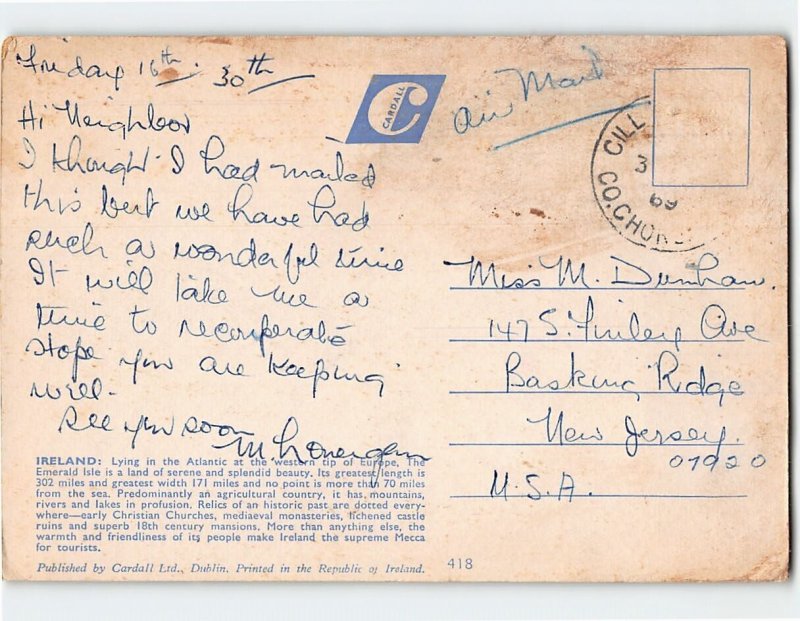 Friday 16th. 30th
CARDALL
Air Mail
Hi Neighbor
I thought I had mailed
this but we have had
such a wonderful time
It will take me a
time to recouperate
Hope you are keeping
well.
See you soon
M. Lonergan
CILL
3
69
CO.CHOR
Miss M. Dunham.
147 S. Finley Ave
Basking Ridge
New Jersey.
07920
U.S.A.
IRELAND: Lying in the Atlantic at the western tip of Europe, The
Emerald Isle is a land of serene and splendid beauty. Its greatest length is
302 miles and greatest width 171 miles and no point is more than 70 miles
from the sea. Predominantly an agricultural country, it has mountains,
rivers and lakes in profusion. Relics of an historic past are dotted every-
where—early Christian Churches, mediaeval monasteries, lichened castle
ruins and superb 18th century mansions. More than anything else, the
warmth and friendliness of its people make Ireland the supreme Mecca
for tourists.
Published by Cardall Ltd., Dublin. Printed in the Republic of Ireland.
418